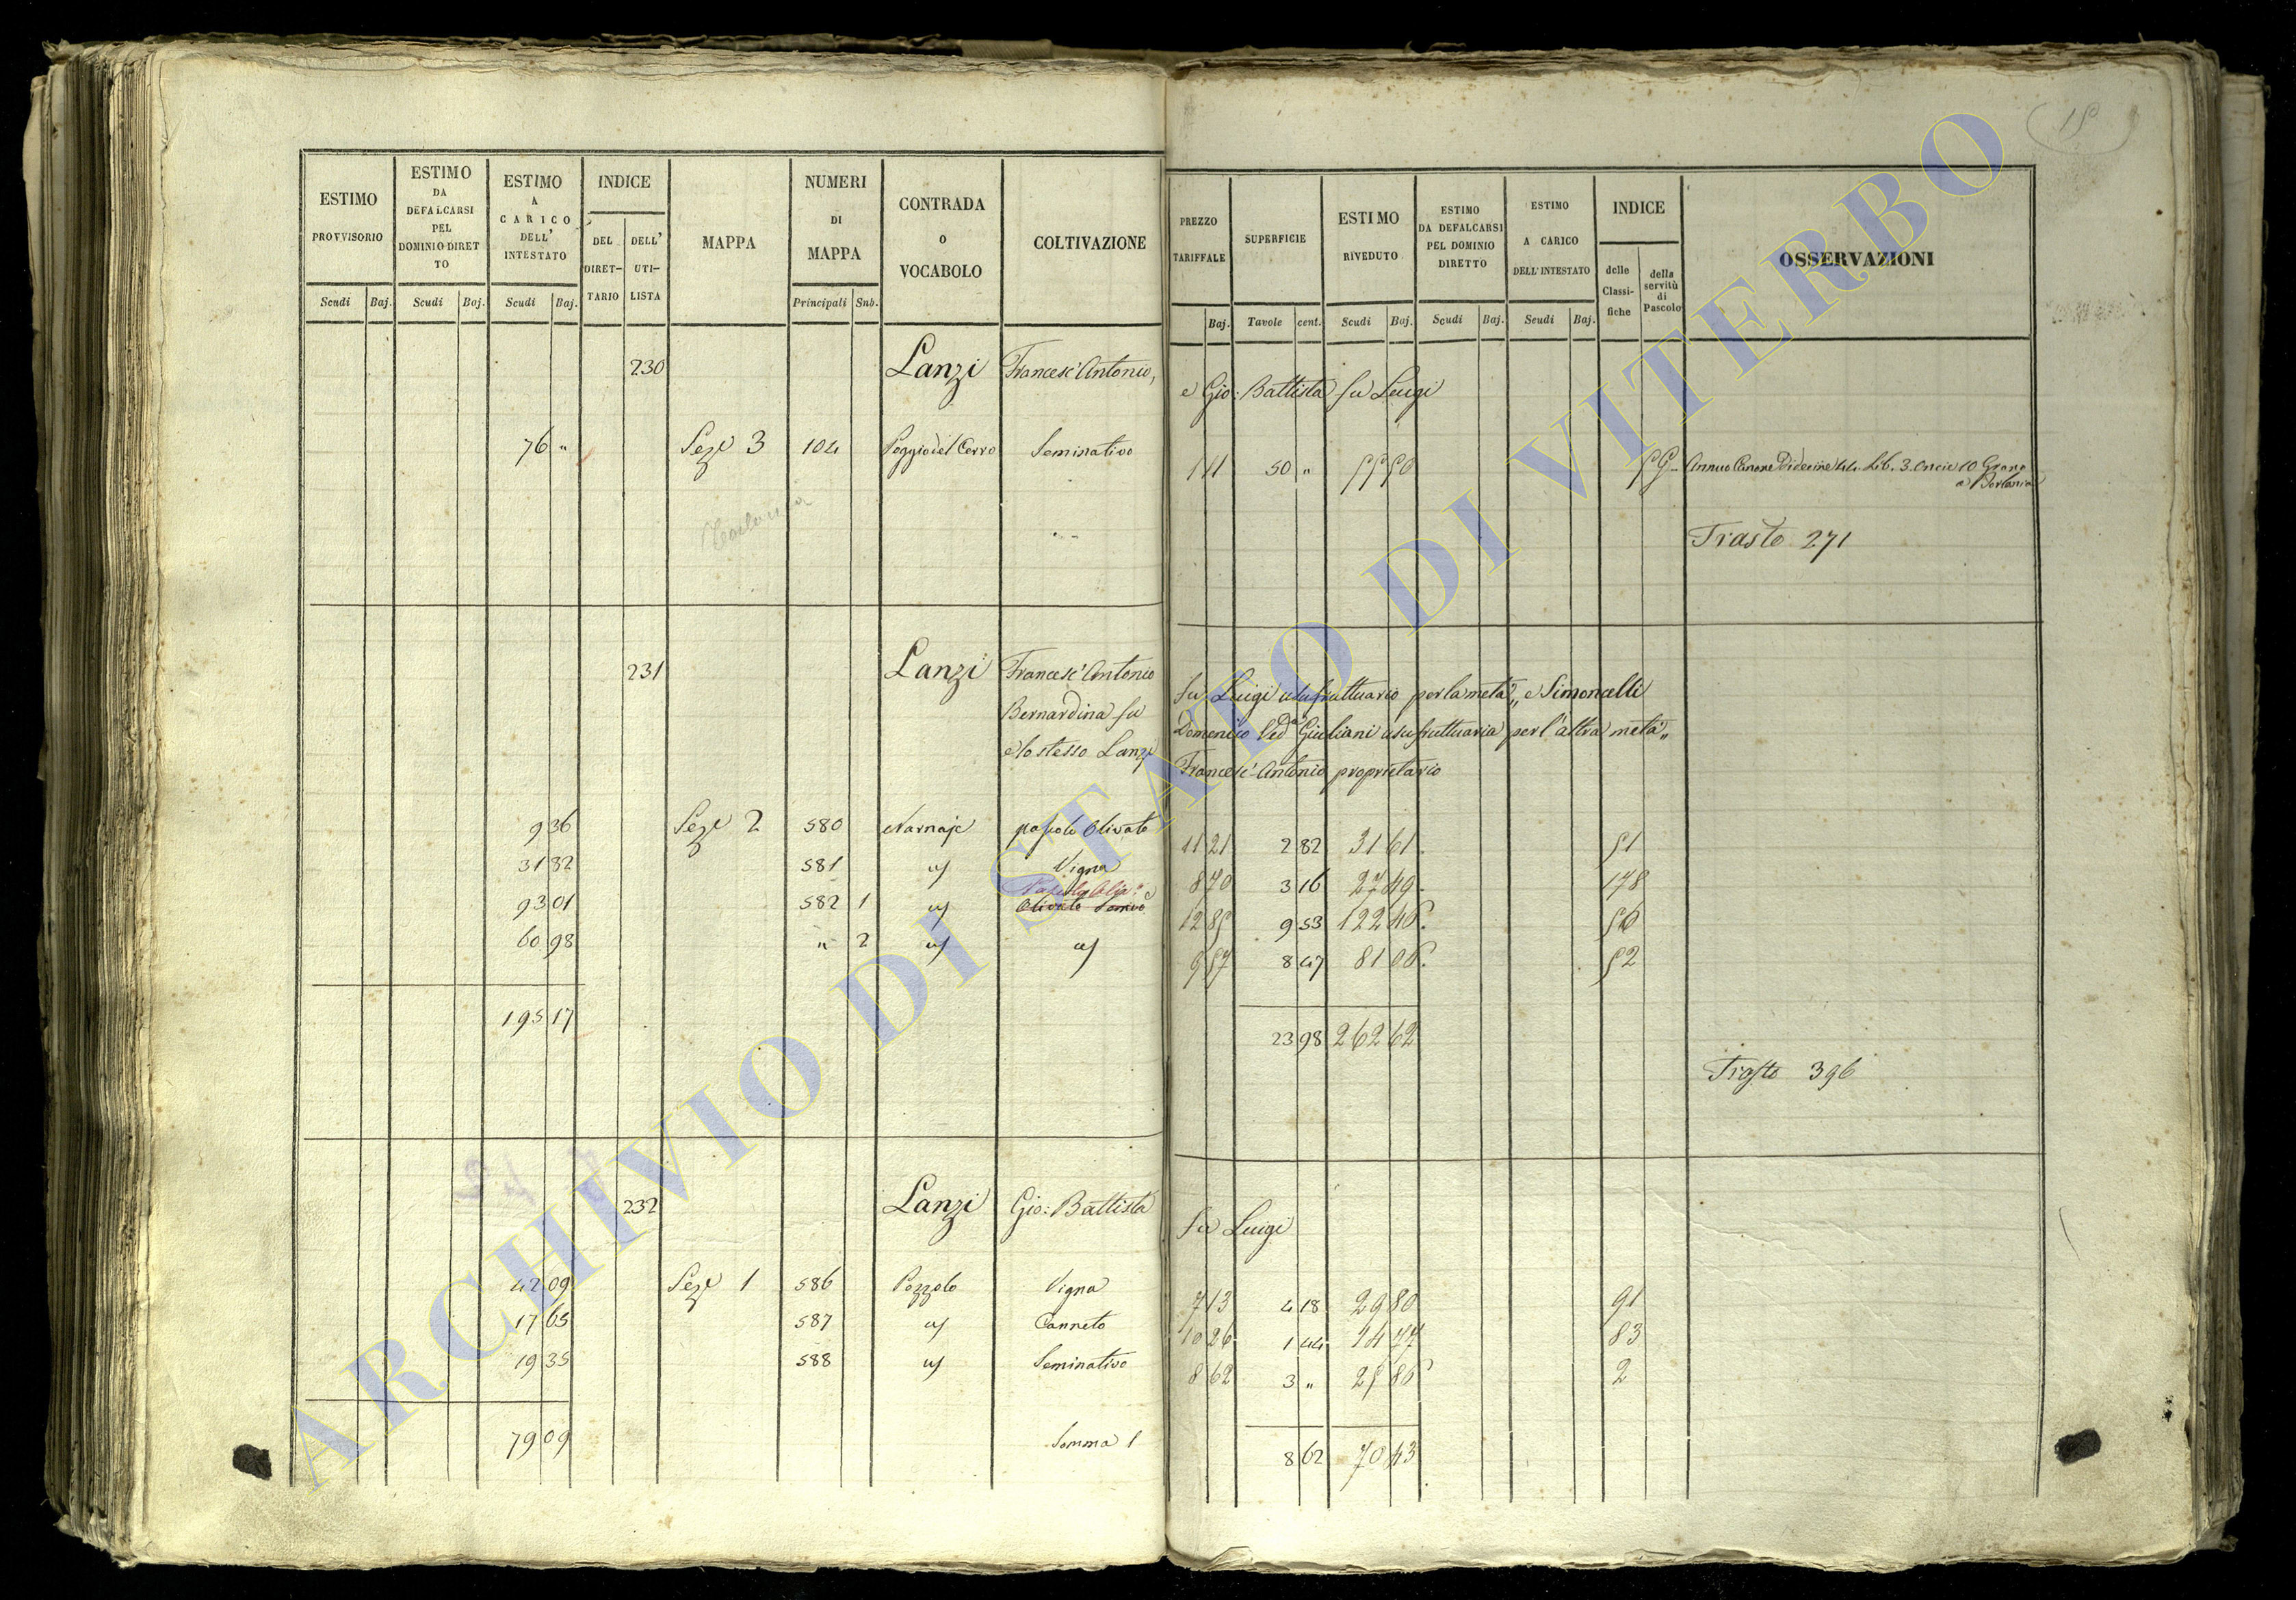 15
ESTIMO PROVVISORIO
Scudi Baj.
ESTIMO DA DEFALCARSI PEL DOMINIO DIRETTO
Scudi Baj.
ESTIMO A CARICO DELL' INTESTATO
Scudi Baj.
INDICE
DEL DIRET-TARIO
DELL' UTI-LISTA
MAPPA
NUMERI DI MAPPA
Principali Sub.
CONTRADA O VOCABOLO
COLTIVAZIONE
PREZZO TARIFFALE
Baj.
SUPERFICIE
Tavole cent.
ESTIMO RIVEDUTO
Scudi Baj.
ESTIMO DA DEFALCARSI PEL DOMINIO DIRETTO
Scudi Baj.
ESTIMO A CARICO DELL' INTESTATO
Scudi Baj.
INDICE
delle Classi-fiche
della servitù di Pascolo
OSSERVAZIONI
230 Lanzi Francesc'Antonio, e Gio: Battista fu Luigi
76 " Seze 3 104 Poggio del Cerro Seminativo 1 11 50 " 55 50 Annuo Canone Di decine 44. Lib. 3. oncie 10 Grano
Trasto 271
231 Lanzi Francesc'Antonio fu Luigi usufruttuario per la metà, e Simoncelli
Bernardina fu Domenico Veda Giuliani usufruttuaria per l'altra metà,,
e lo stesso Lanzi Francesc'Antonio proprietario
9 36 Seze 2 580 Narnaje pascolo Olivato 11 21 2 82 31 61 51
31 32 581 Vigna 8 70 3 16 27 49 178
93 01 582 1 Olivato 12 85 9 53 122 46 56
60 98 " 2 9 57 8 47 81 06 52
195 17 23 98 262 62
Trasto 396
232 Lanzi Gio: Battista fu Luigi
42 09 Seze 1 586 Pozzolo Vigna 7 13 4 18 29 80 91
17 65 587 Canneto 10 26 1 44 14 77 83
19 35 588 Seminativo 8 62 3 " 25 86 2
79 09 Somma 1 8 62 70 43
ARCHIVIO DI STATO DI VITERBO